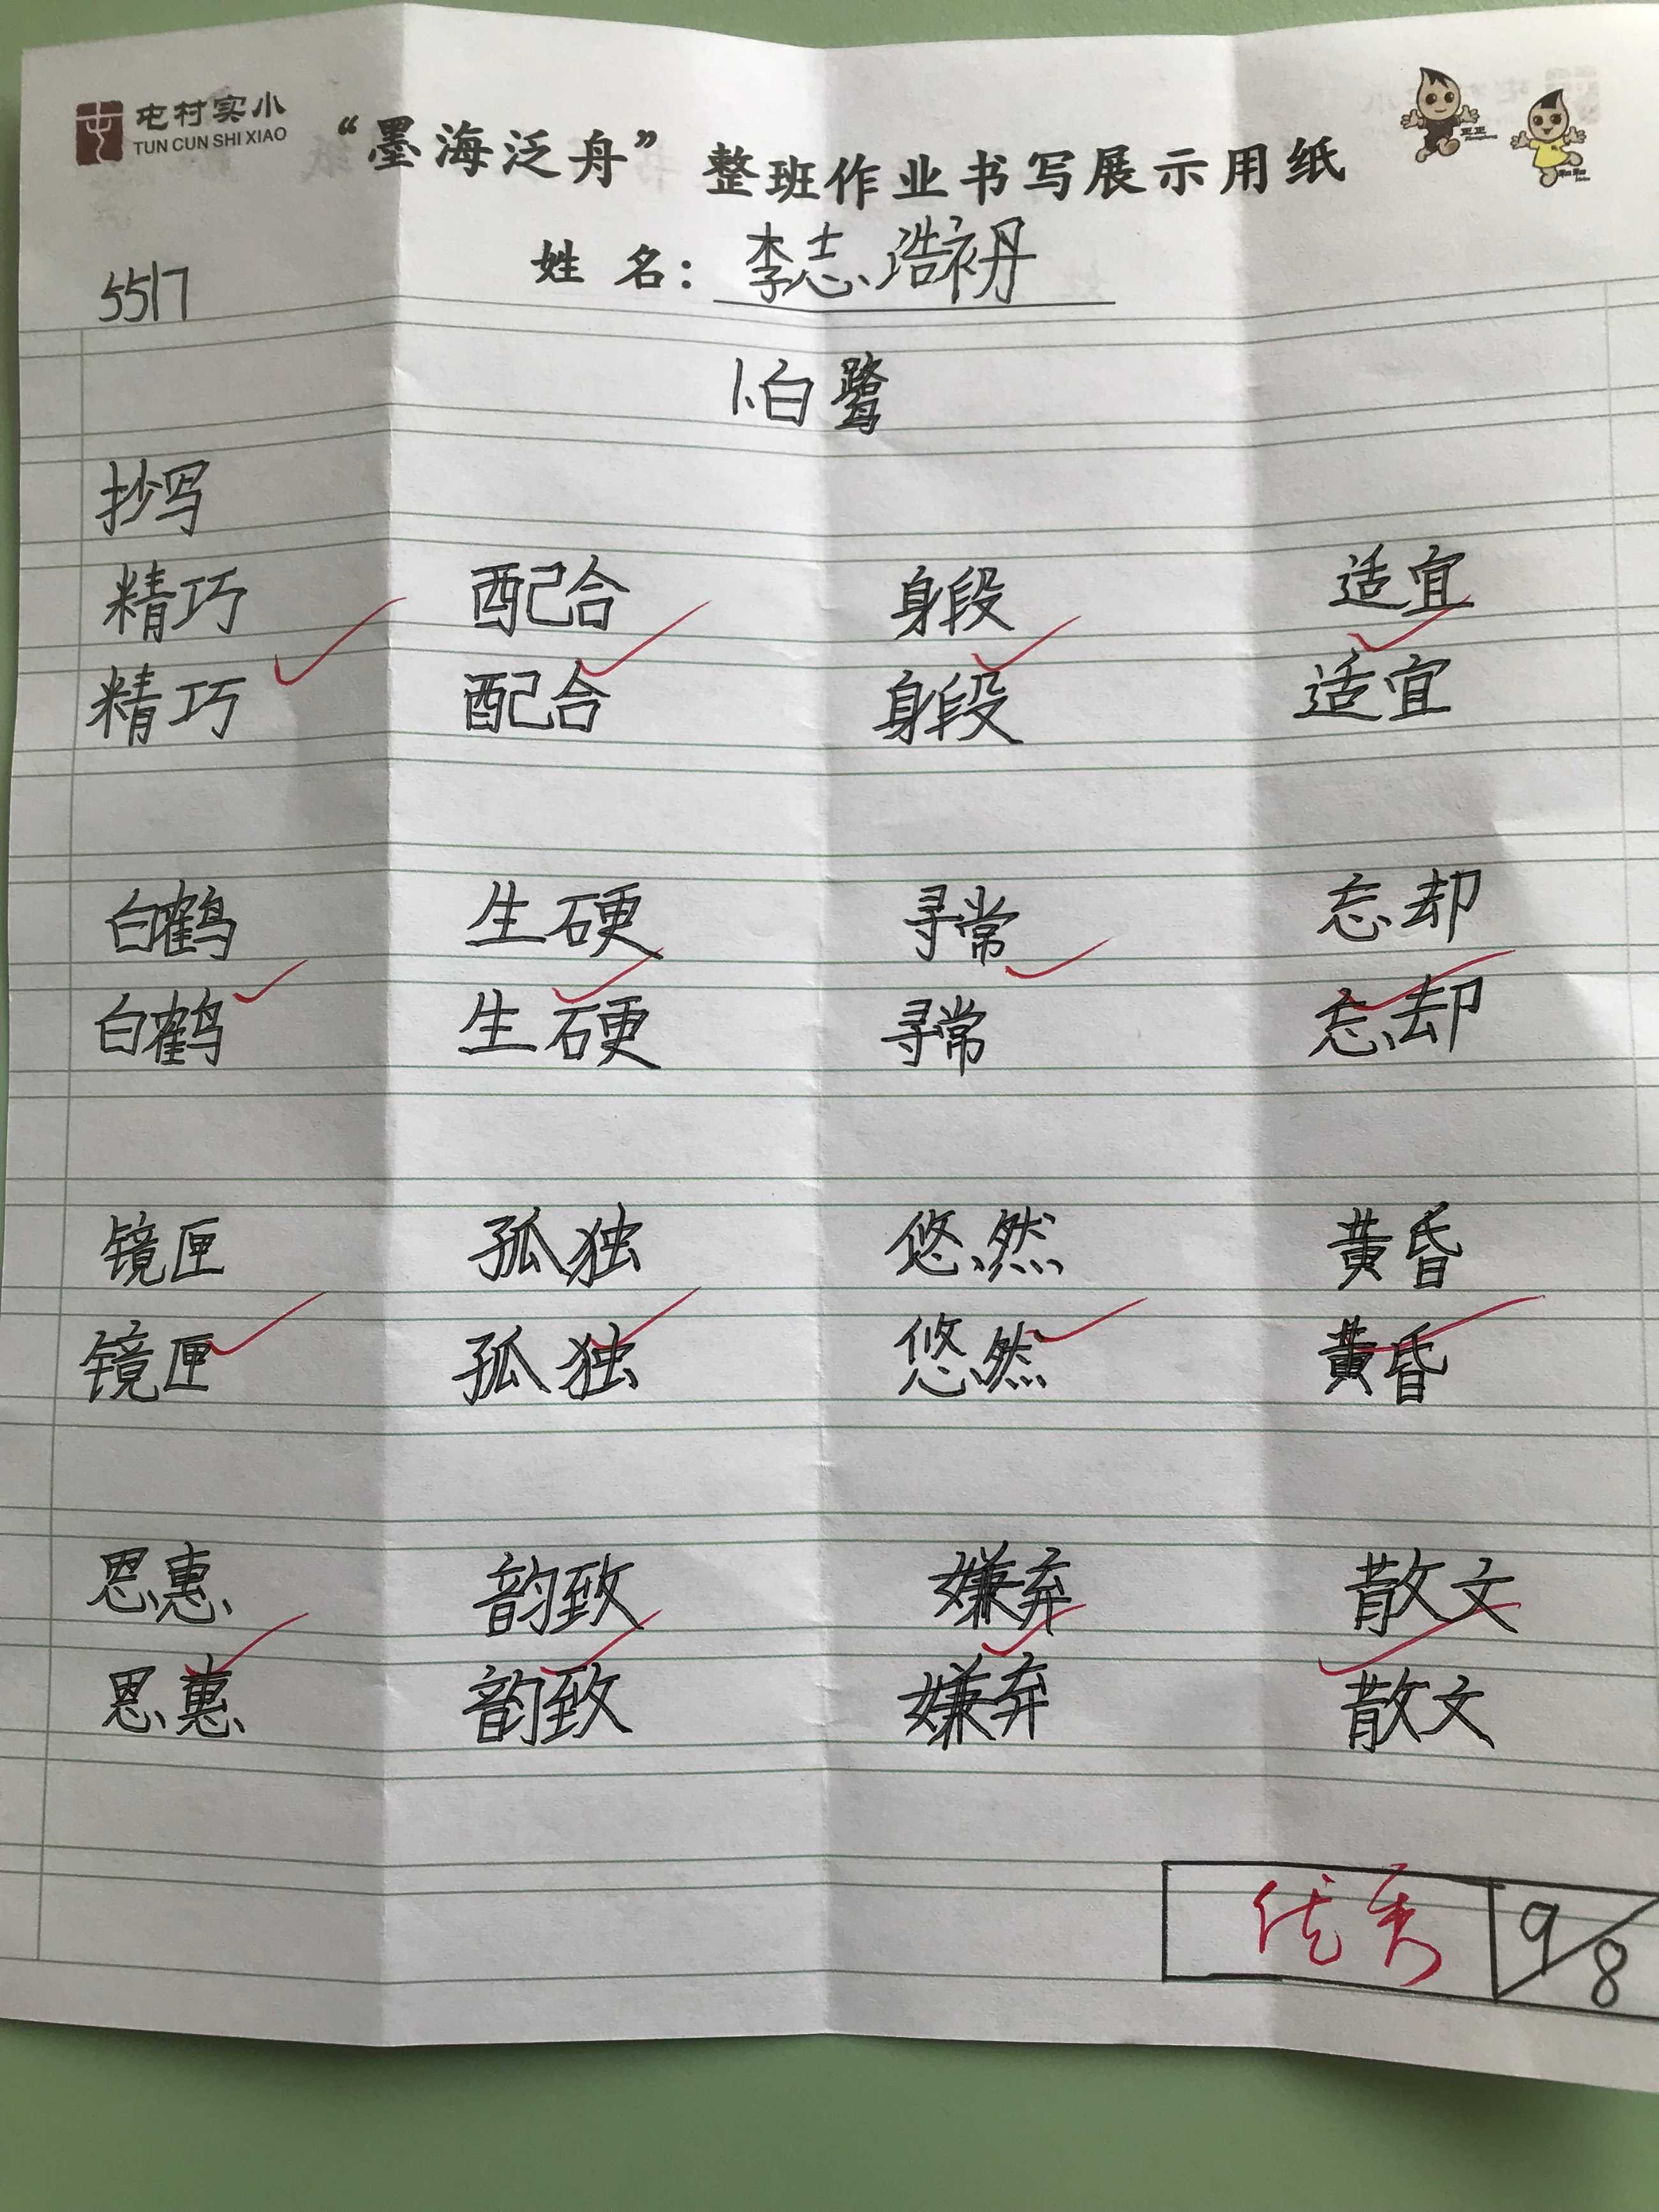 屯村实小
TUN CUN SHI XIAO
“墨海泛舟” 整班作业书写展示用纸
姓 名：李志浩
5517
1.白鹭
抄写
精巧 配合 身段 适宜
精巧 配合 身段 适宜
白鹤 生硬 寻常 忘却
白鹤 生硬 寻常 忘却
镜匣 孤独 悠然 黄昏
镜匣 孤独 悠然 黄昏
恩惠 韵致 嫌弃 散文
恩惠 韵致 嫌弃 散文
优秀 9/8